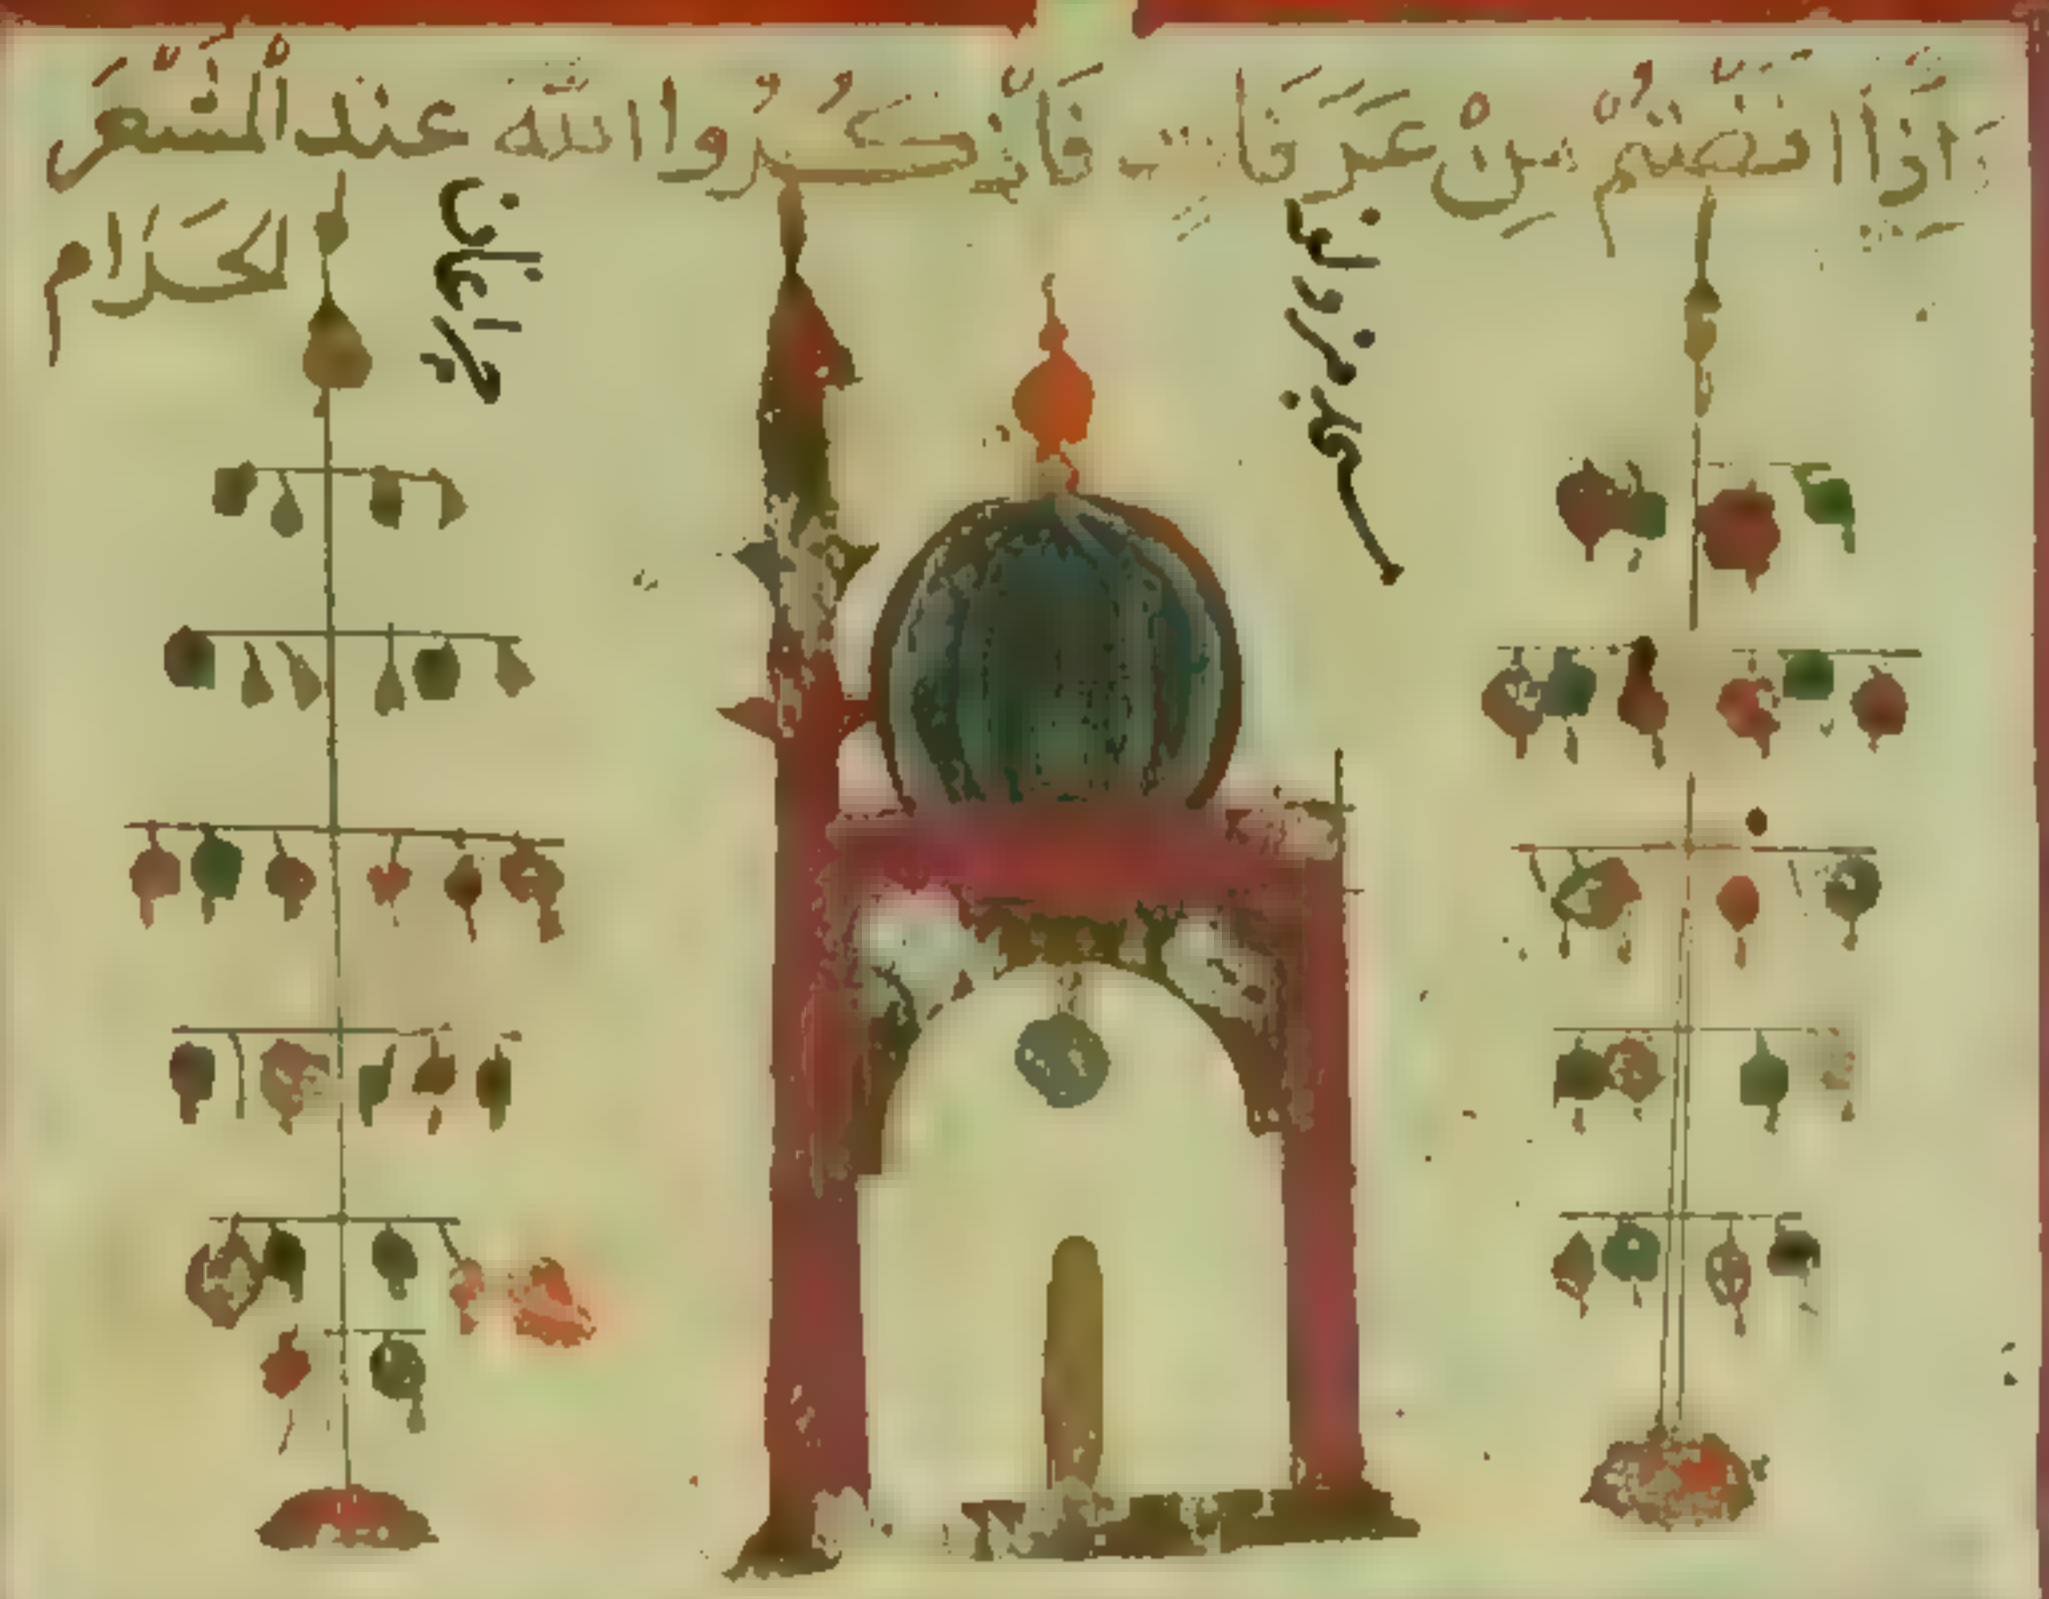 اِذَا اَفَضْتُمْ مِنْ عَرَفَاتٍ فَاذْكُرُوا اللّٰهَ عِنْدَ الْمَشْعَرِ
الْحَرَامِ
مسجد
چراغان